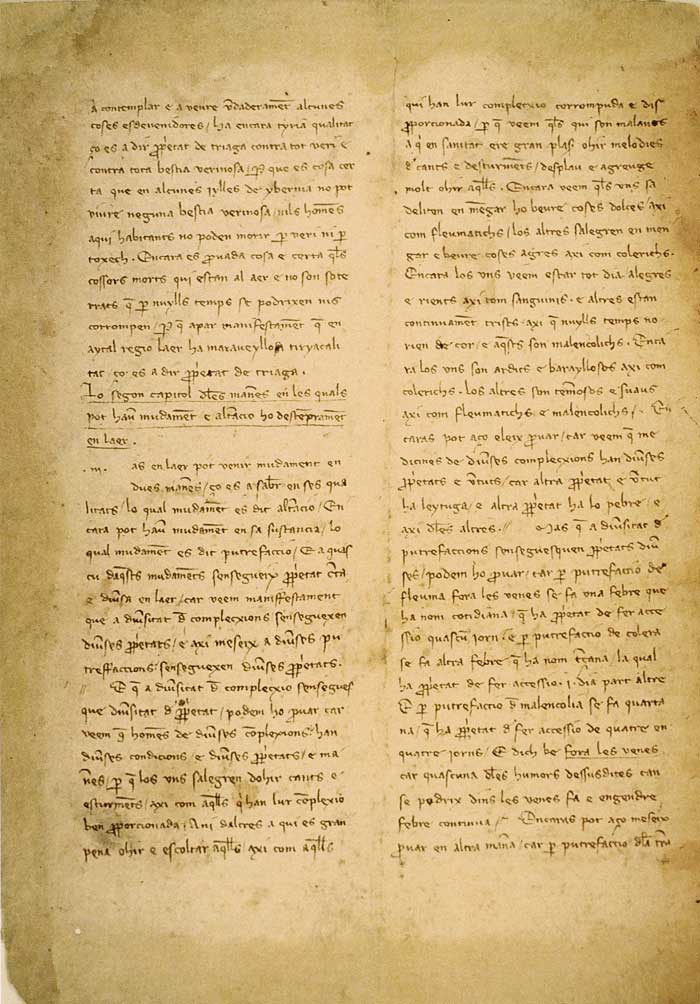 A contemplar e a veure vdaderamēt alcunes
coses esdevenidores / ha encara tyria qualitat
ço es a dir ppetat de triaga contra tot veri e
contra tota bestia verinosa / p que es cosa cer
ta que en alcunes jylles de ybernia no pot
viure neguna bestia verinosa / nils homēs
aqui habitants no poden morir p veri ni p
toxech . Encara es pvada cosa e certa qls
cossors morts qui estan al aer e no son sote
rrats q̄ p nuylls temps se podrixen nis
corrompen / p q̄ apar manifestamēt q̄ en
aytal regio laer ha maraveyllosa tiryacali
tat ço es a dir ppetat de triaga .
Lo segon capitol dles manēs en les quals
pot havr̄ mudamēt e altacio ho destepramēt
en laer .
. m . as en laer pot venir mudament en
dues manēs / ço es a sabr en ses qua
litats / lo qual mudamēt es dit altacio / En
cara pot havr̄ mudamēt en sa sustancia / lo
qual mudamēt es dit putrefaccio / E a quas
cu daqsts mudamēts sensegueix ppetat cta
e divsa en laer / car veem maniffestament
que a divsitat d complexions senseguexen
divses ppetats / e axi meseix a divses pu
treffaccions senseguexen divses ppetats .
// E q̄ a divsitat d complexio sensegues
que divsitat d ppetat / podem ho pvar car
veem q̄ homēs de divses coplexions han
divses condicions / e divses ppetats / e ma
nēs / p q̄ los vns salegren dohir cants e
esturmēts / axi com aqlls q̄ han lur cōplexio
ben pporcionada / Ani daltres a qui es gran
pena ohir e escoltar aqlls axi com aqlls
qui han lur complecxio corrompuda e dis
pporcionada / p q̄ veem qls qui son malaves
a q̄ en sanitat ere gran plas ohir melodies
d cants e desturmēts / desplau e agreuge
molt ohir aqlls . Encara veem qls vns sa
deliten en mēgar ho beure coses dolces axi
com fleumatichs / los altres salegren en men
gar e beure coses agres axi com colerichs .
Encara los vns veem estar tot dia alegres
e rients axi com sanguinis . e altres estan
continuamēt trists . axi q̄ nuylls temps no
rien de cor . e aqsts son malencolichs . Enca
ra los vns son ardits e barayllosos axi com
colerichs . los altres son temosos e suaus
axi com fleumatichs e malencolichs / . En
caras pot aço eleix pvar / car veem q̄ me
dicines de divses complecxions han divses
ppetats e vtuts / car altra ppetat e vtut
ha leytuga / e altra ppetat ha lo pebre / e
axi dles altres . // Mas q̄ a divsitat d
putrefaccions senseguesquen ppetats divs
ses / podem ho pvar / car p putrefaccio de
fleuma fora les venes se fa vna febre que
ha nom cotidiana / q̄ ha ppetat de fer acce
ssio quascu jorn . e p putrefaccio de colera
se fa altra febre q̄ ha nom tcana / la qual
ha ppetat de fer accessio . j . dia part altre
E p putrefaccio d malencolia se fa quarta
na / q̄ ha ppetat d fer accessio de quatre en
quatre jorns / E dich be fora les venes
car quascuna dles humors dessusdites can
se podrix dins les venes fa e engendre
febre continua / Encaras pot aço meseix
pvar en altra mana / car p putrefaccio dla cta